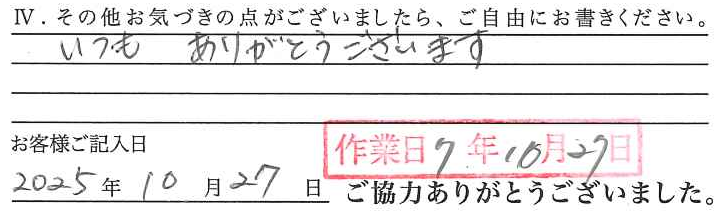 Ⅳ．その他お気づきの点がございましたら、ご自由にお書きください。
いつも ありがとうございます
お客様ご記入日
作業日 7年10月27日
2025年 10月27日
ご協力ありがとうございました。